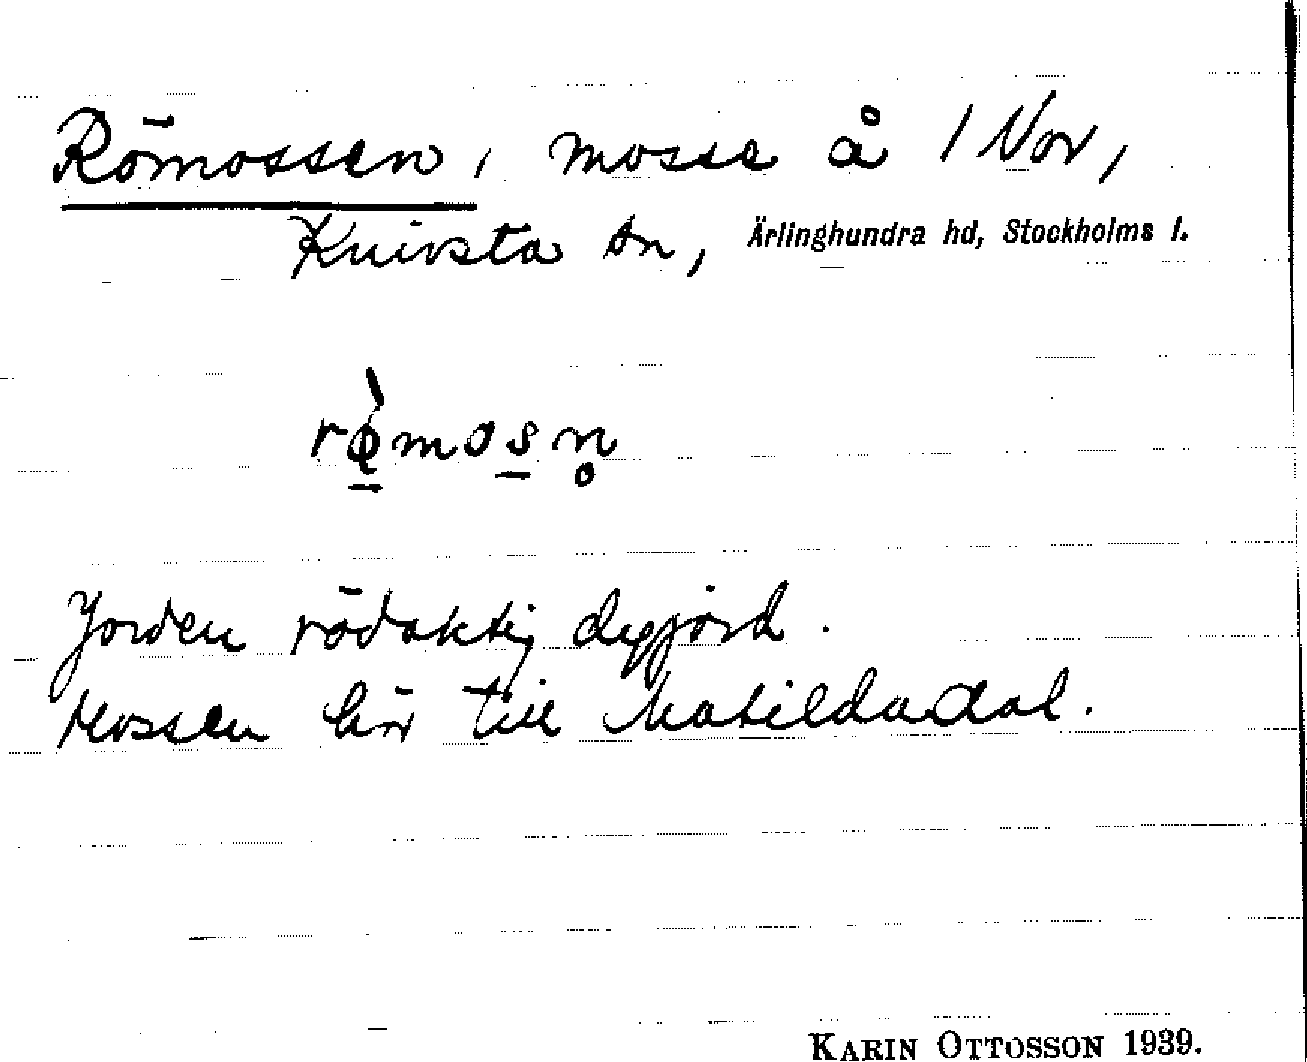 Römossen, mosse å 1 Nor,
Knivsta sn, Ärlinghundra hd, Stockholms l.
rø̀mosn̥
Jorden rödaktig dyjord.
Mossen hör till Matildadal.
KARIN OTTOSSON 1939.